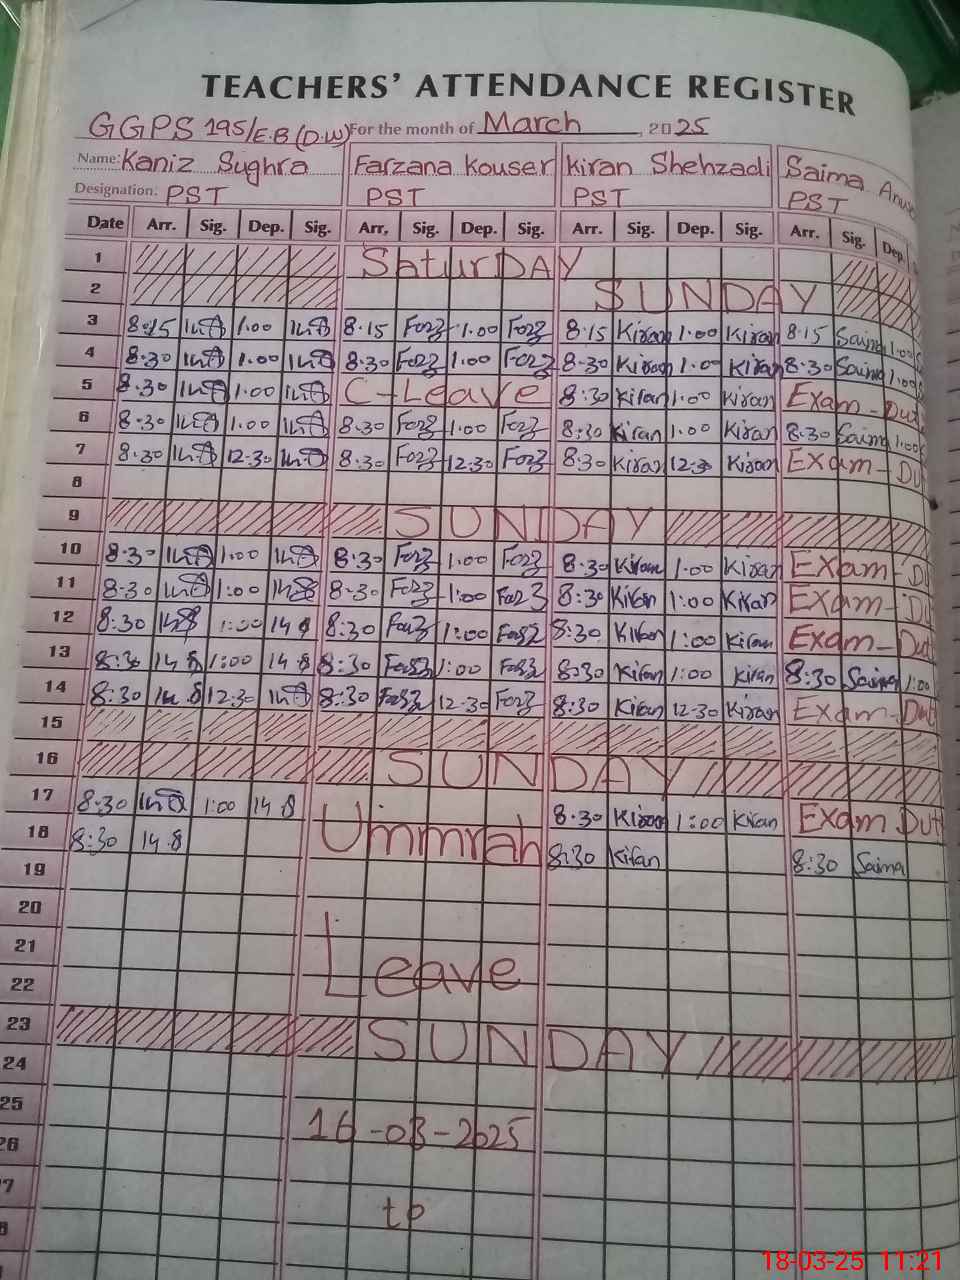 TEACHERS' ATTENDANCE REGISTER
GGPS 195/E.B (D.W) For the month of March, 2025
Name: Kaniz Sughra Farzana Kouser Kiran Shehzadi Saima
Designation: PST PST PST PST
Date Arr. Sig. Dep. Sig. Arr. Sig. Dep. Sig. Arr. Sig. Dep. Sig. Arr. Sig. Dep.
1 SaturDAY
2 SUNDAY
3 8:15 1.00 8.15 1.00 8.15 Kiran 1.00 Kiran 8.15 Saima 1.00
4 8.30 1.00 8.30 1.00 8.30 Kiran 1.00 Kiran 8.30 Saima 1.00
5 8.30 1.00 C-Leave 8.30 Kiran 1.00 Kiran Exam-Dut
6 8.30 1.00 8.30 1.00 8.30 Kiran 1.00 Kiran 8.30 Saima 1.00
7 8.30 12.30 8.30 12.30 8.30 Kiran 12.30 Kiran Exam-Du
8
9 SUNDAY
10 8.30 1.00 8.30 1.00 8.30 Kiran 1.00 Kiran Exam-Du
11 8.30 1:00 8.30 1:00 8:30 Kiran 1:00 Kiran Exam-Du
12 8:30 1:00 8:30 1:00 8:30 Kiran 1:00 Kiran Exam-Dut
13 8:30 1:00 8:30 1:00 8:30 Kiran 1:00 Kiran 8:30 Saima 1:00
14 8:30 12:30 8:30 12-30 8:30 Kiran 12-30 Kiran Exam-Dut
15
16 SUNDAY
17 8.30 1:00 Ummrah 8.30 Kiran 1:00 Kiran Exam Dut
18 8:30 8:30 Kiran 8:30 Saima
19
20
21 Leave
22
23 SUNDAY
24
25 16-03-2025
26
7 to
8
18-03-25 11:21